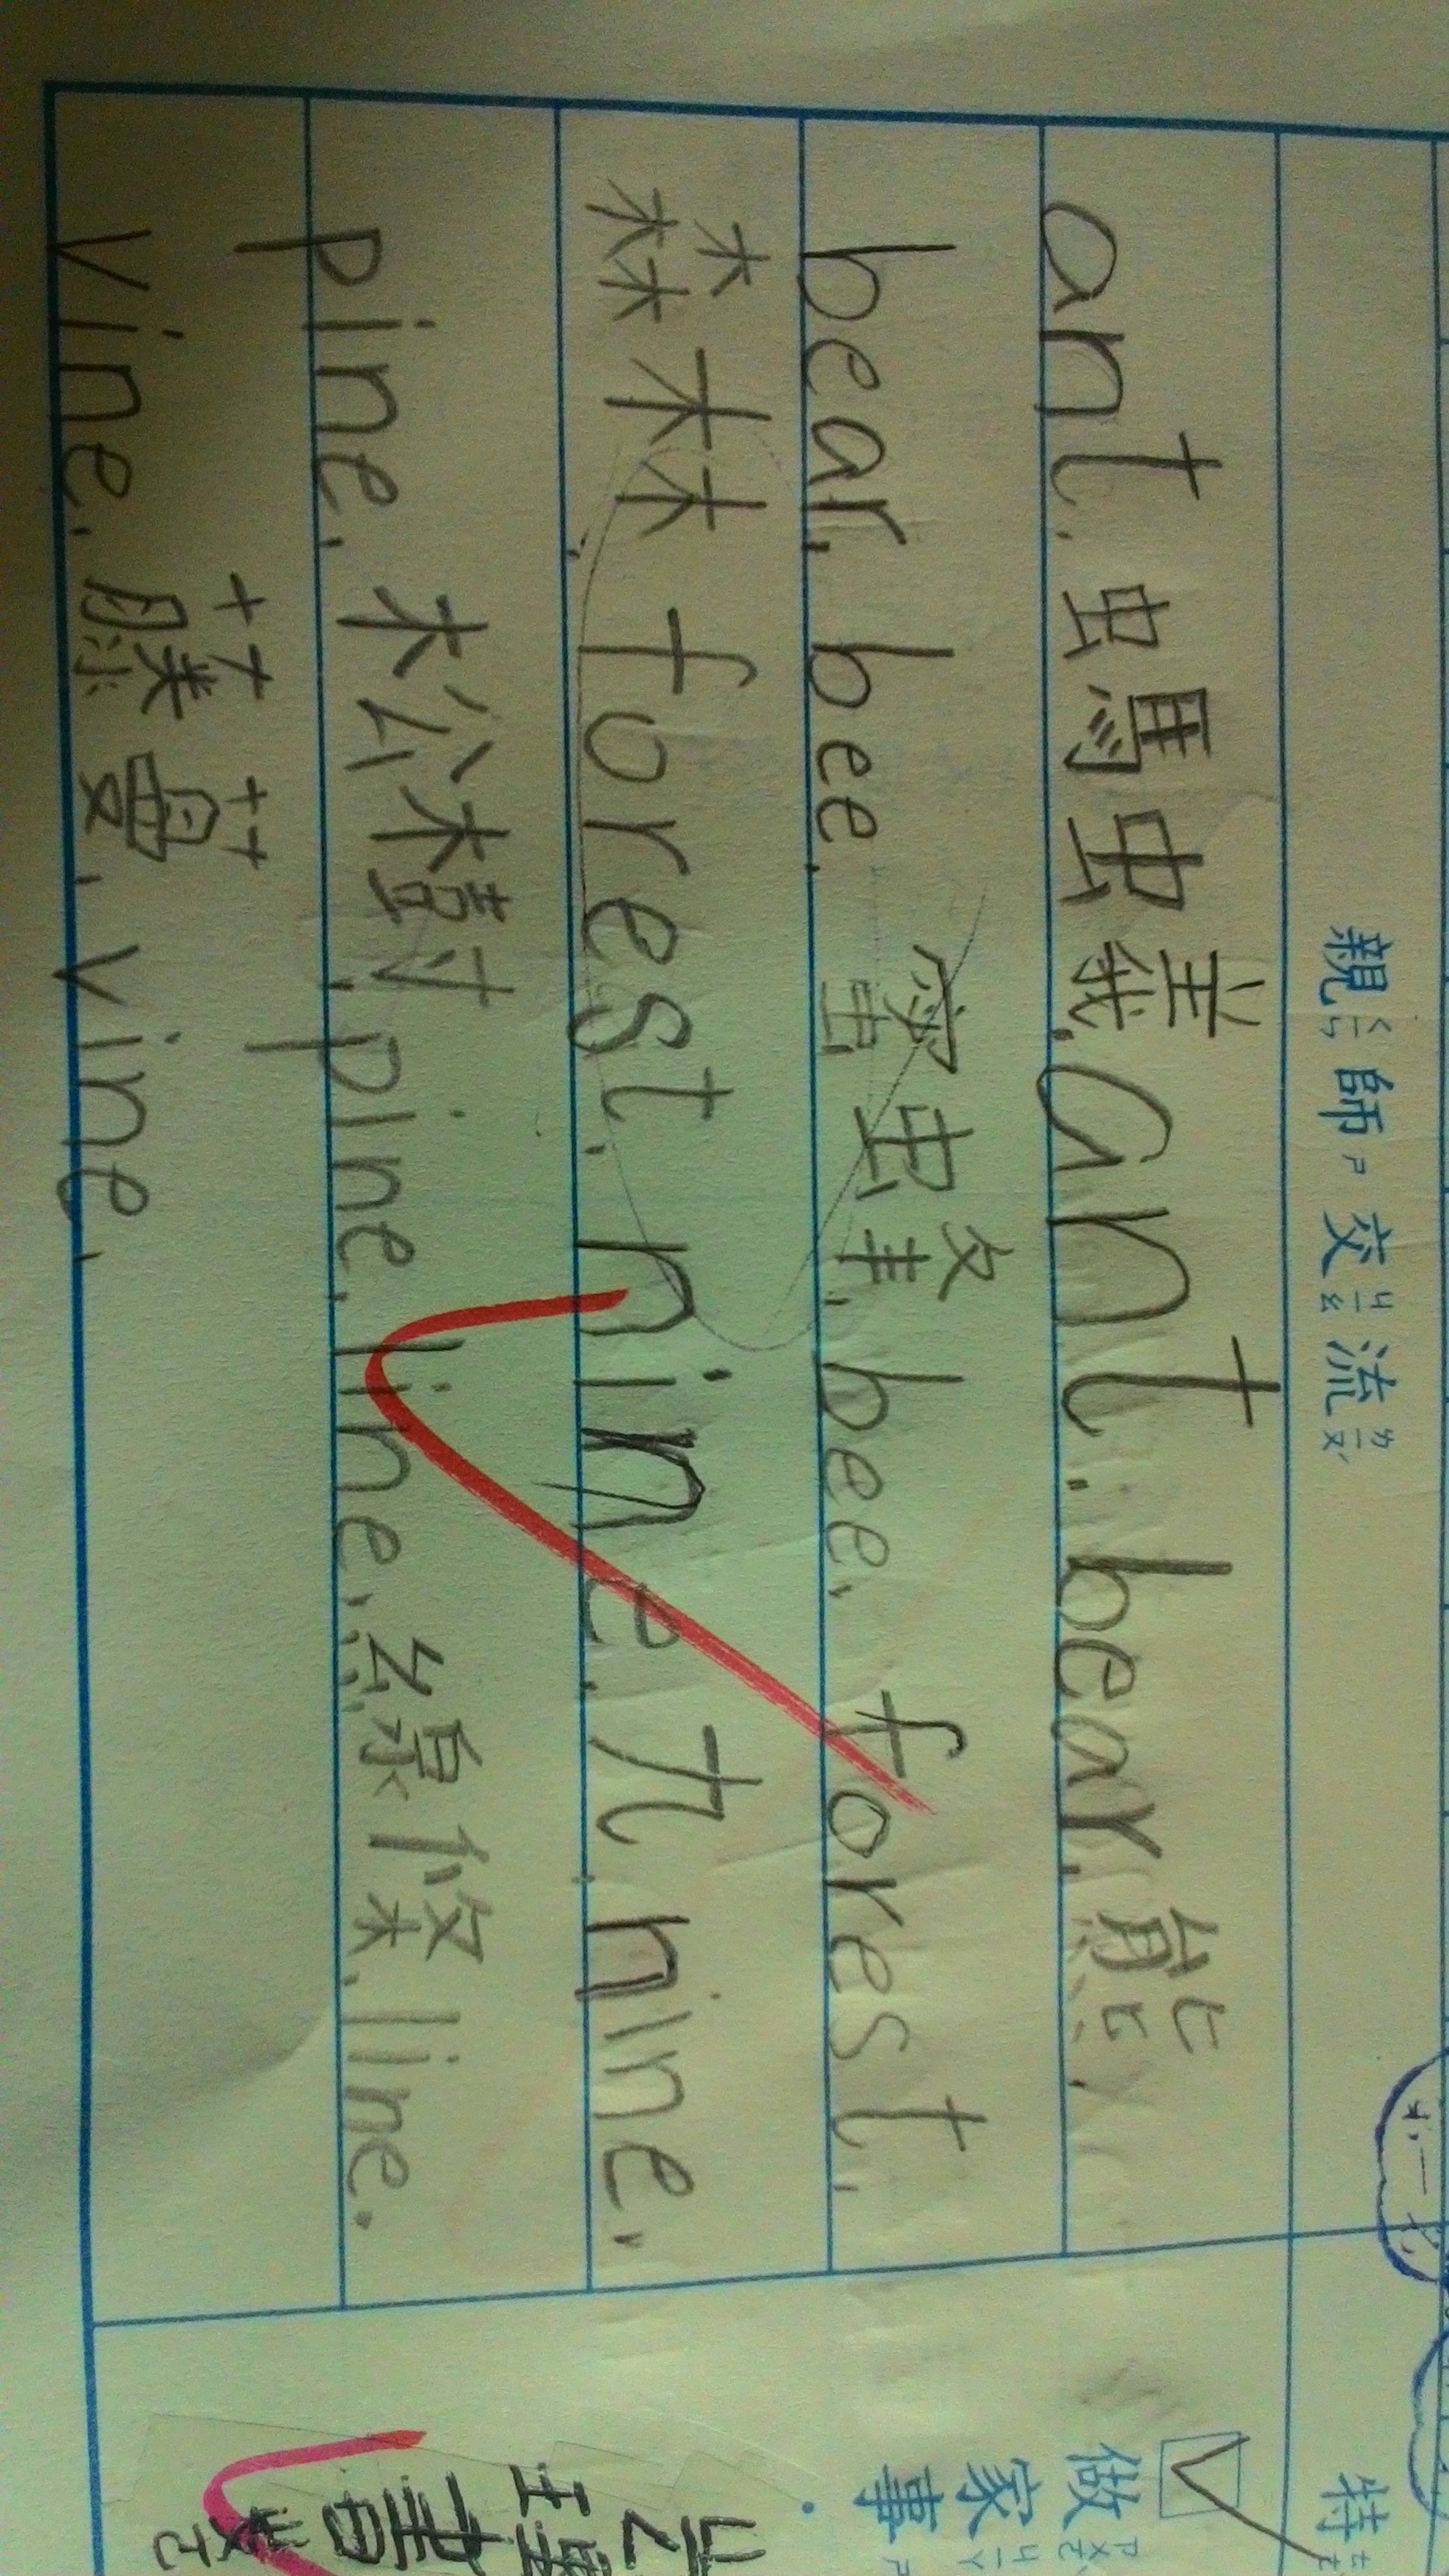 親師交流
ant. 螞蟻. ant. bear. 熊.
bear. bee. 蜜蜂. bee. forest.
森林. forest. nine. 九. nine.
pine. 松樹. pine. line. 線條. line.
vine. 藤蔓. vine.
特
做家事